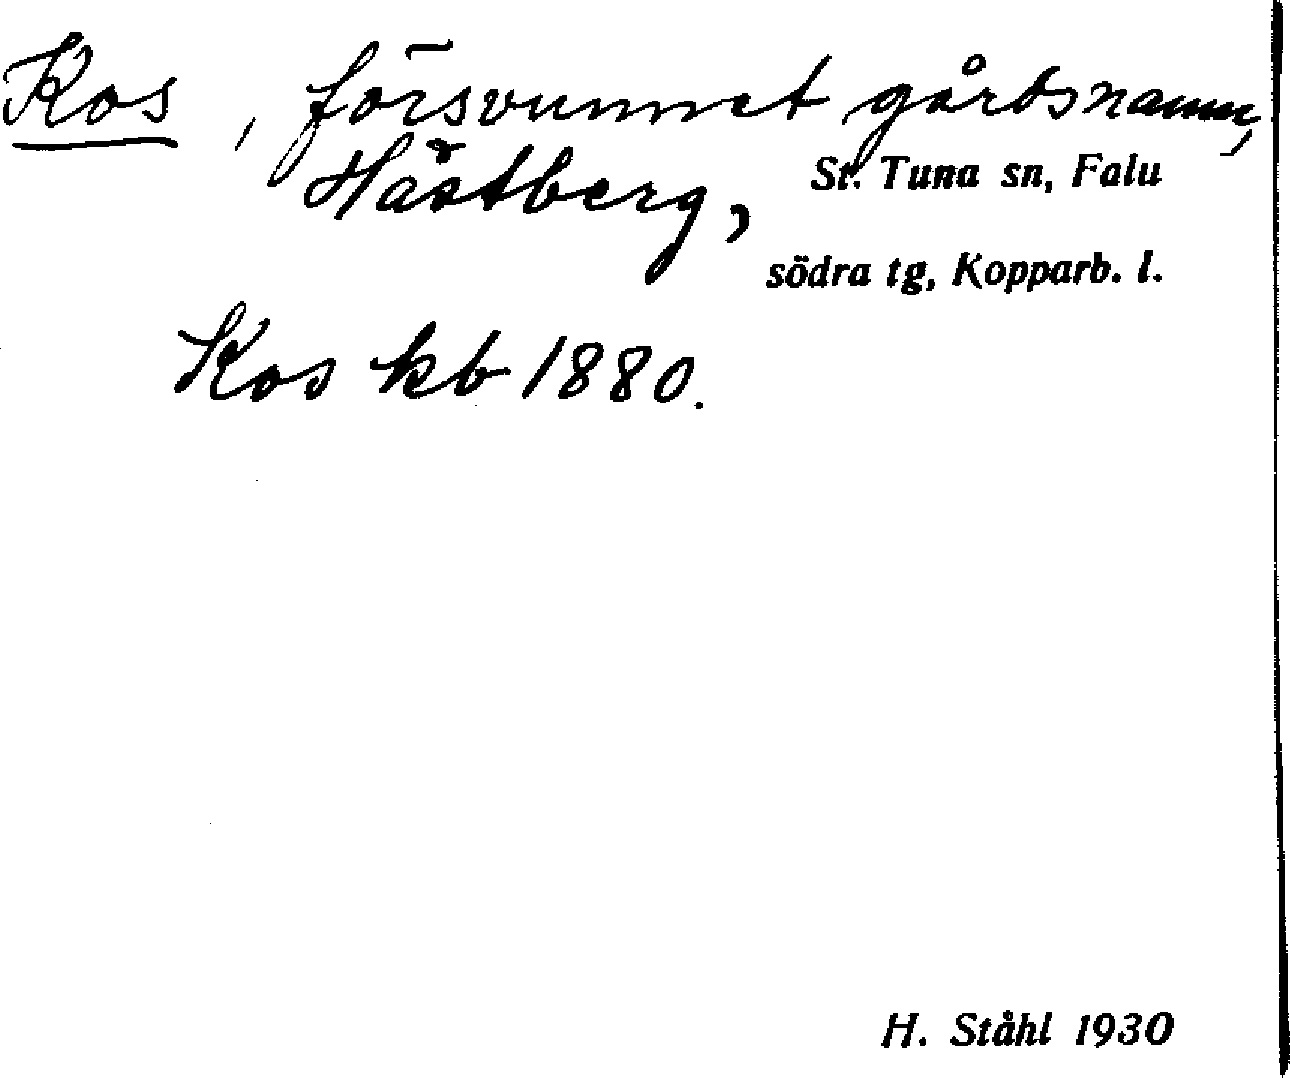 Kos, försvunnet gårdsnamn,
Hästberg, St. Tuna sn, Falu
södra tg, Kopparb. l.
Kos kb 1880.
H. Ståhl 1930